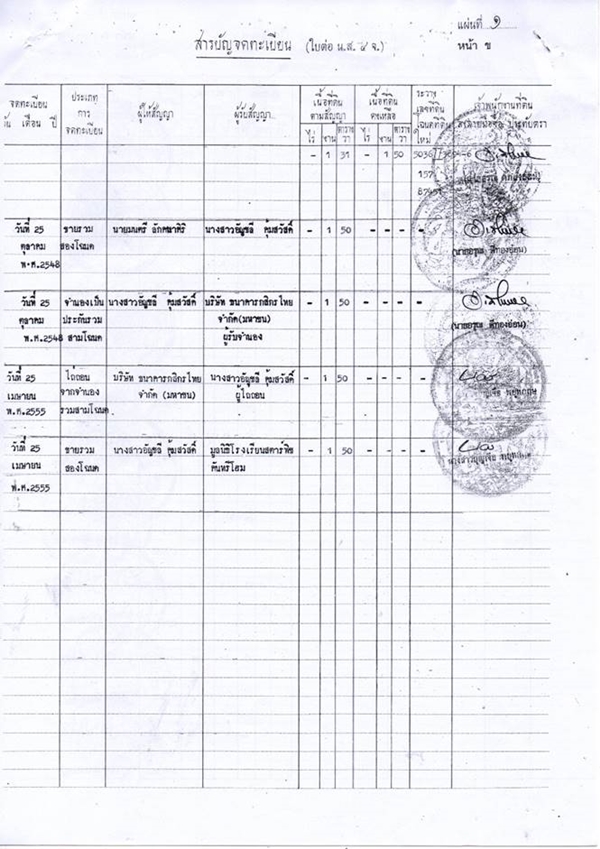 แผ่นที่ ๑
สารบัญจดทะเบียน (ใบต่อ น.ส. ๔ จ.)
หน้า ข
จดทะเบียน ประเภท ผู้ให้สัญญา ผู้รับสัญญา เนื้อที่ดิน เนื้อที่ดิน ระวาง เจ้าพนักงานที่ดิน
เดือน ปี การ ตามสัญญา คงเหลือ เลขที่ดิน ลงลายมือชื่อ ประทับตรา
จดทะเบียน ไร่ งาน ตารางวา ไร่ งาน ตารางวา โฉนดที่ดินใหม่
- 1 31 - 1 50 5036
157
วันที่ 25 ขายรวม นายมนตรี นางสาวอัญชลี คุ้มสวัสดิ์ - 1 50 - - - -
ตุลาคม สองโฉนด
พ.ศ.2548
วันที่ 25 จำนองเป็น นางสาวอัญชลี คุ้มสวัสดิ์ บริษัท ธนาคารกสิกรไทย - 1 50 - - - -
ตุลาคม ประกันรวม จำกัด(มหาชน)
พ.ศ.2548 สามโฉนด ผู้รับจำนอง
วันที่ 25 ไถ่ถอน บริษัท ธนาคารกสิกรไทย นางสาวอัญชลี คุ้มสวัสดิ์ - 1 50 - - - -
เมษายน จากจำนอง จำกัด (มหาชน) ผู้ไถ่ถอน
พ.ศ.2555 รวมสามโฉนด
วันที่ 25 ขายรวม นางสาวอัญชลี คุ้มสวัสดิ์ มูลนิธิโรงเรียนสตาร์ฟิช - 1 50 - - - -
เมษายน สองโฉนด คันทรีโฮม
พ.ศ.2555